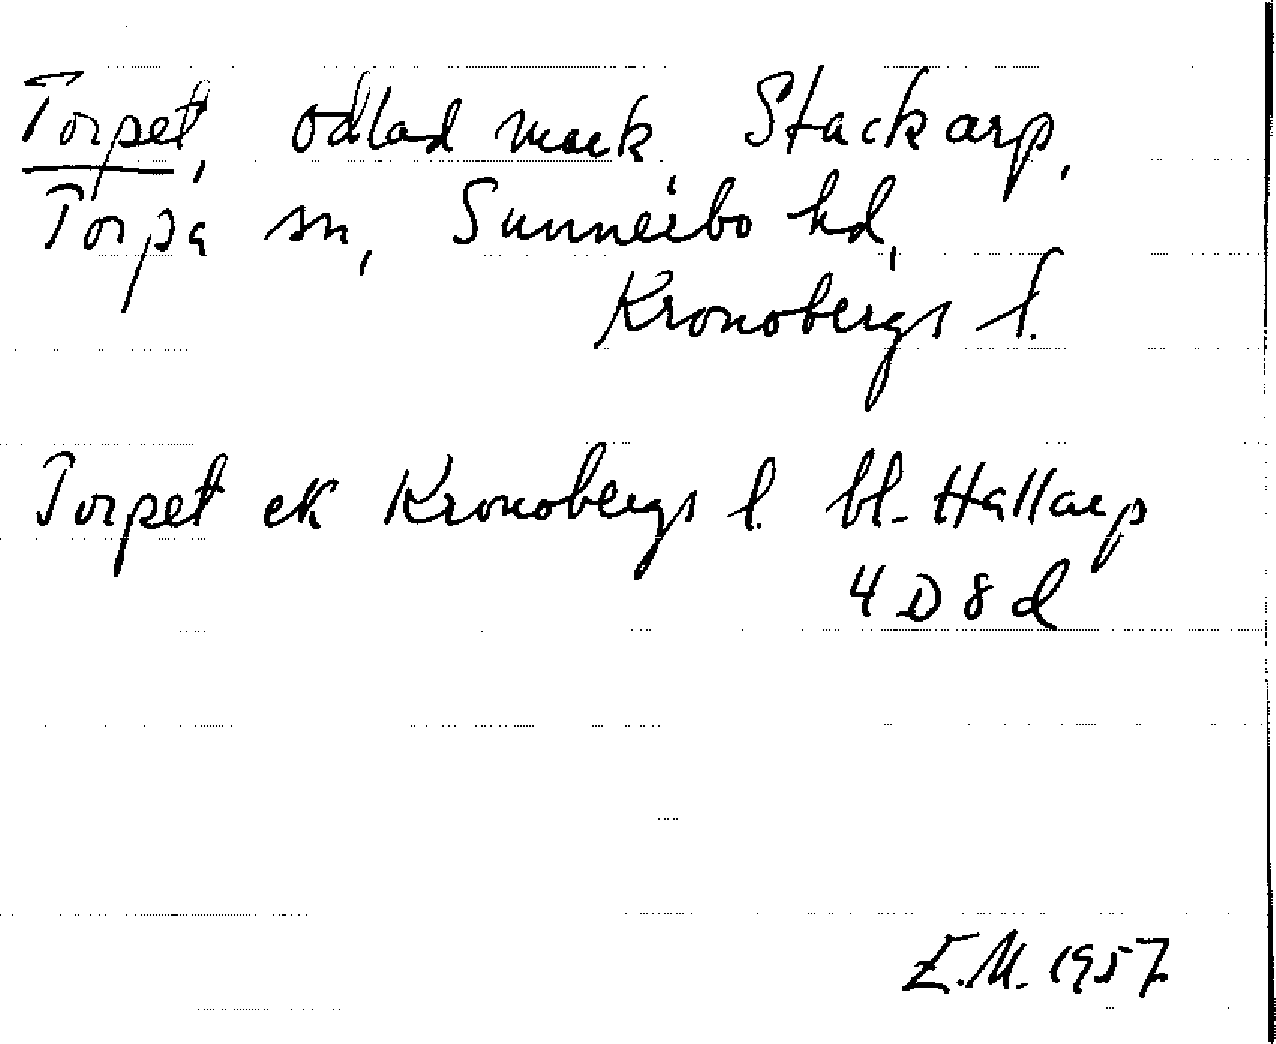 Torpet, odlad mark, Stackarp,
Torpa sn, Sunnerbo hd,
Kronobergs l.
Torpet ek Kronobergs l. bl. Hallarp
4 D 8 d
E.M. 1957